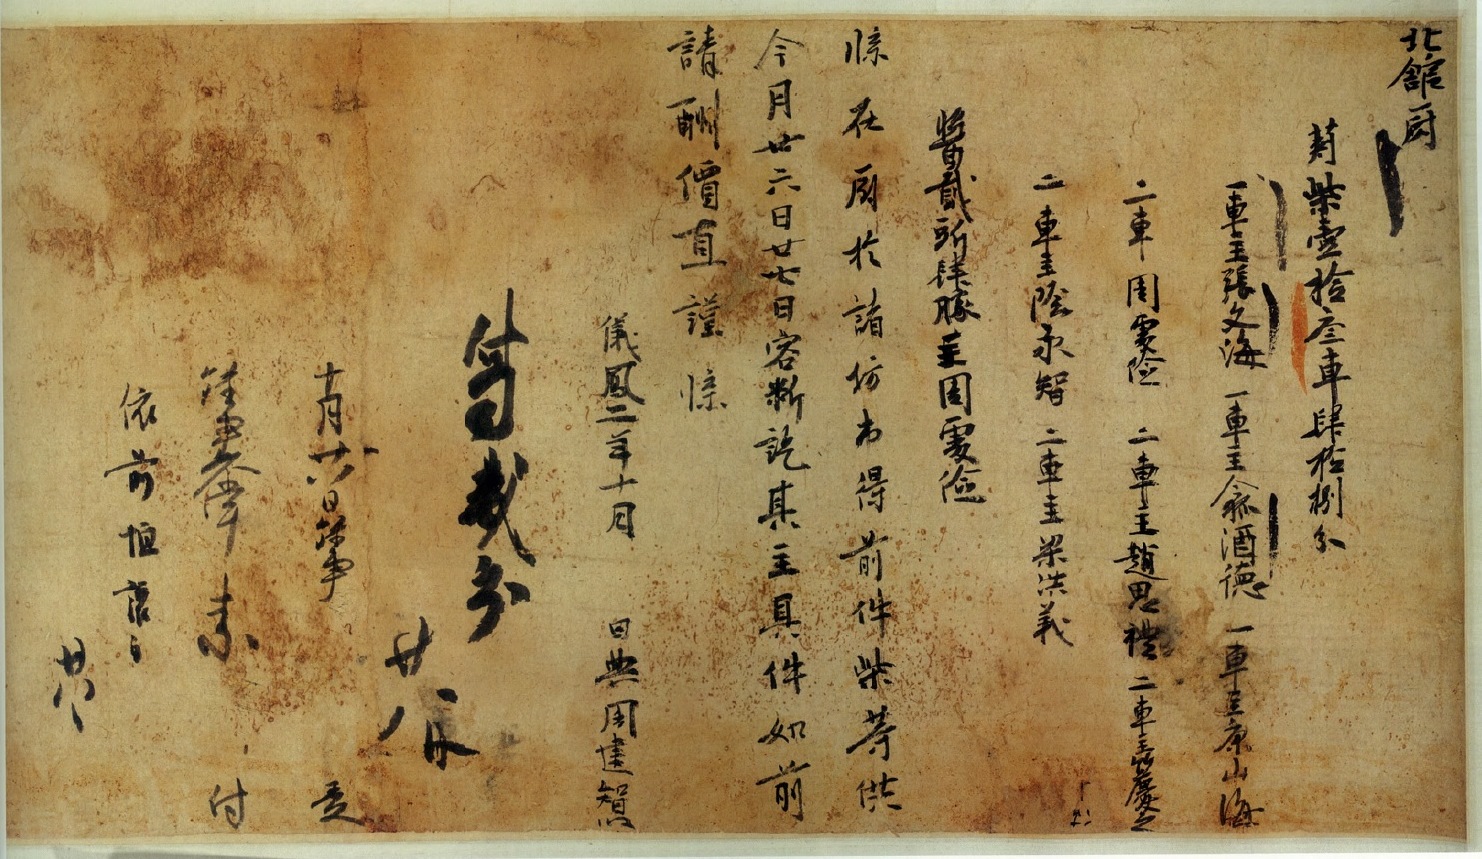 北館厨
莿柴壹拾叁車肆拾捌分
一車主張文海 一車主 酒德 一車主康山海
二車周虔險 二車主趙思禮 二車主 慶
二車主陰永智 二車主梁洪義
醬貳斫肆勝主周虔儉
牒在厨於諸坊市得前件柴等供
今月廿六日廿七日客斷訖其主具件如前
請酬價直謹牒
儀鳳二年十月 日典周建智牒
付 義示
廿八日
十月廿八日錄事 受
錄事 付
依前恒讓白
廿八日